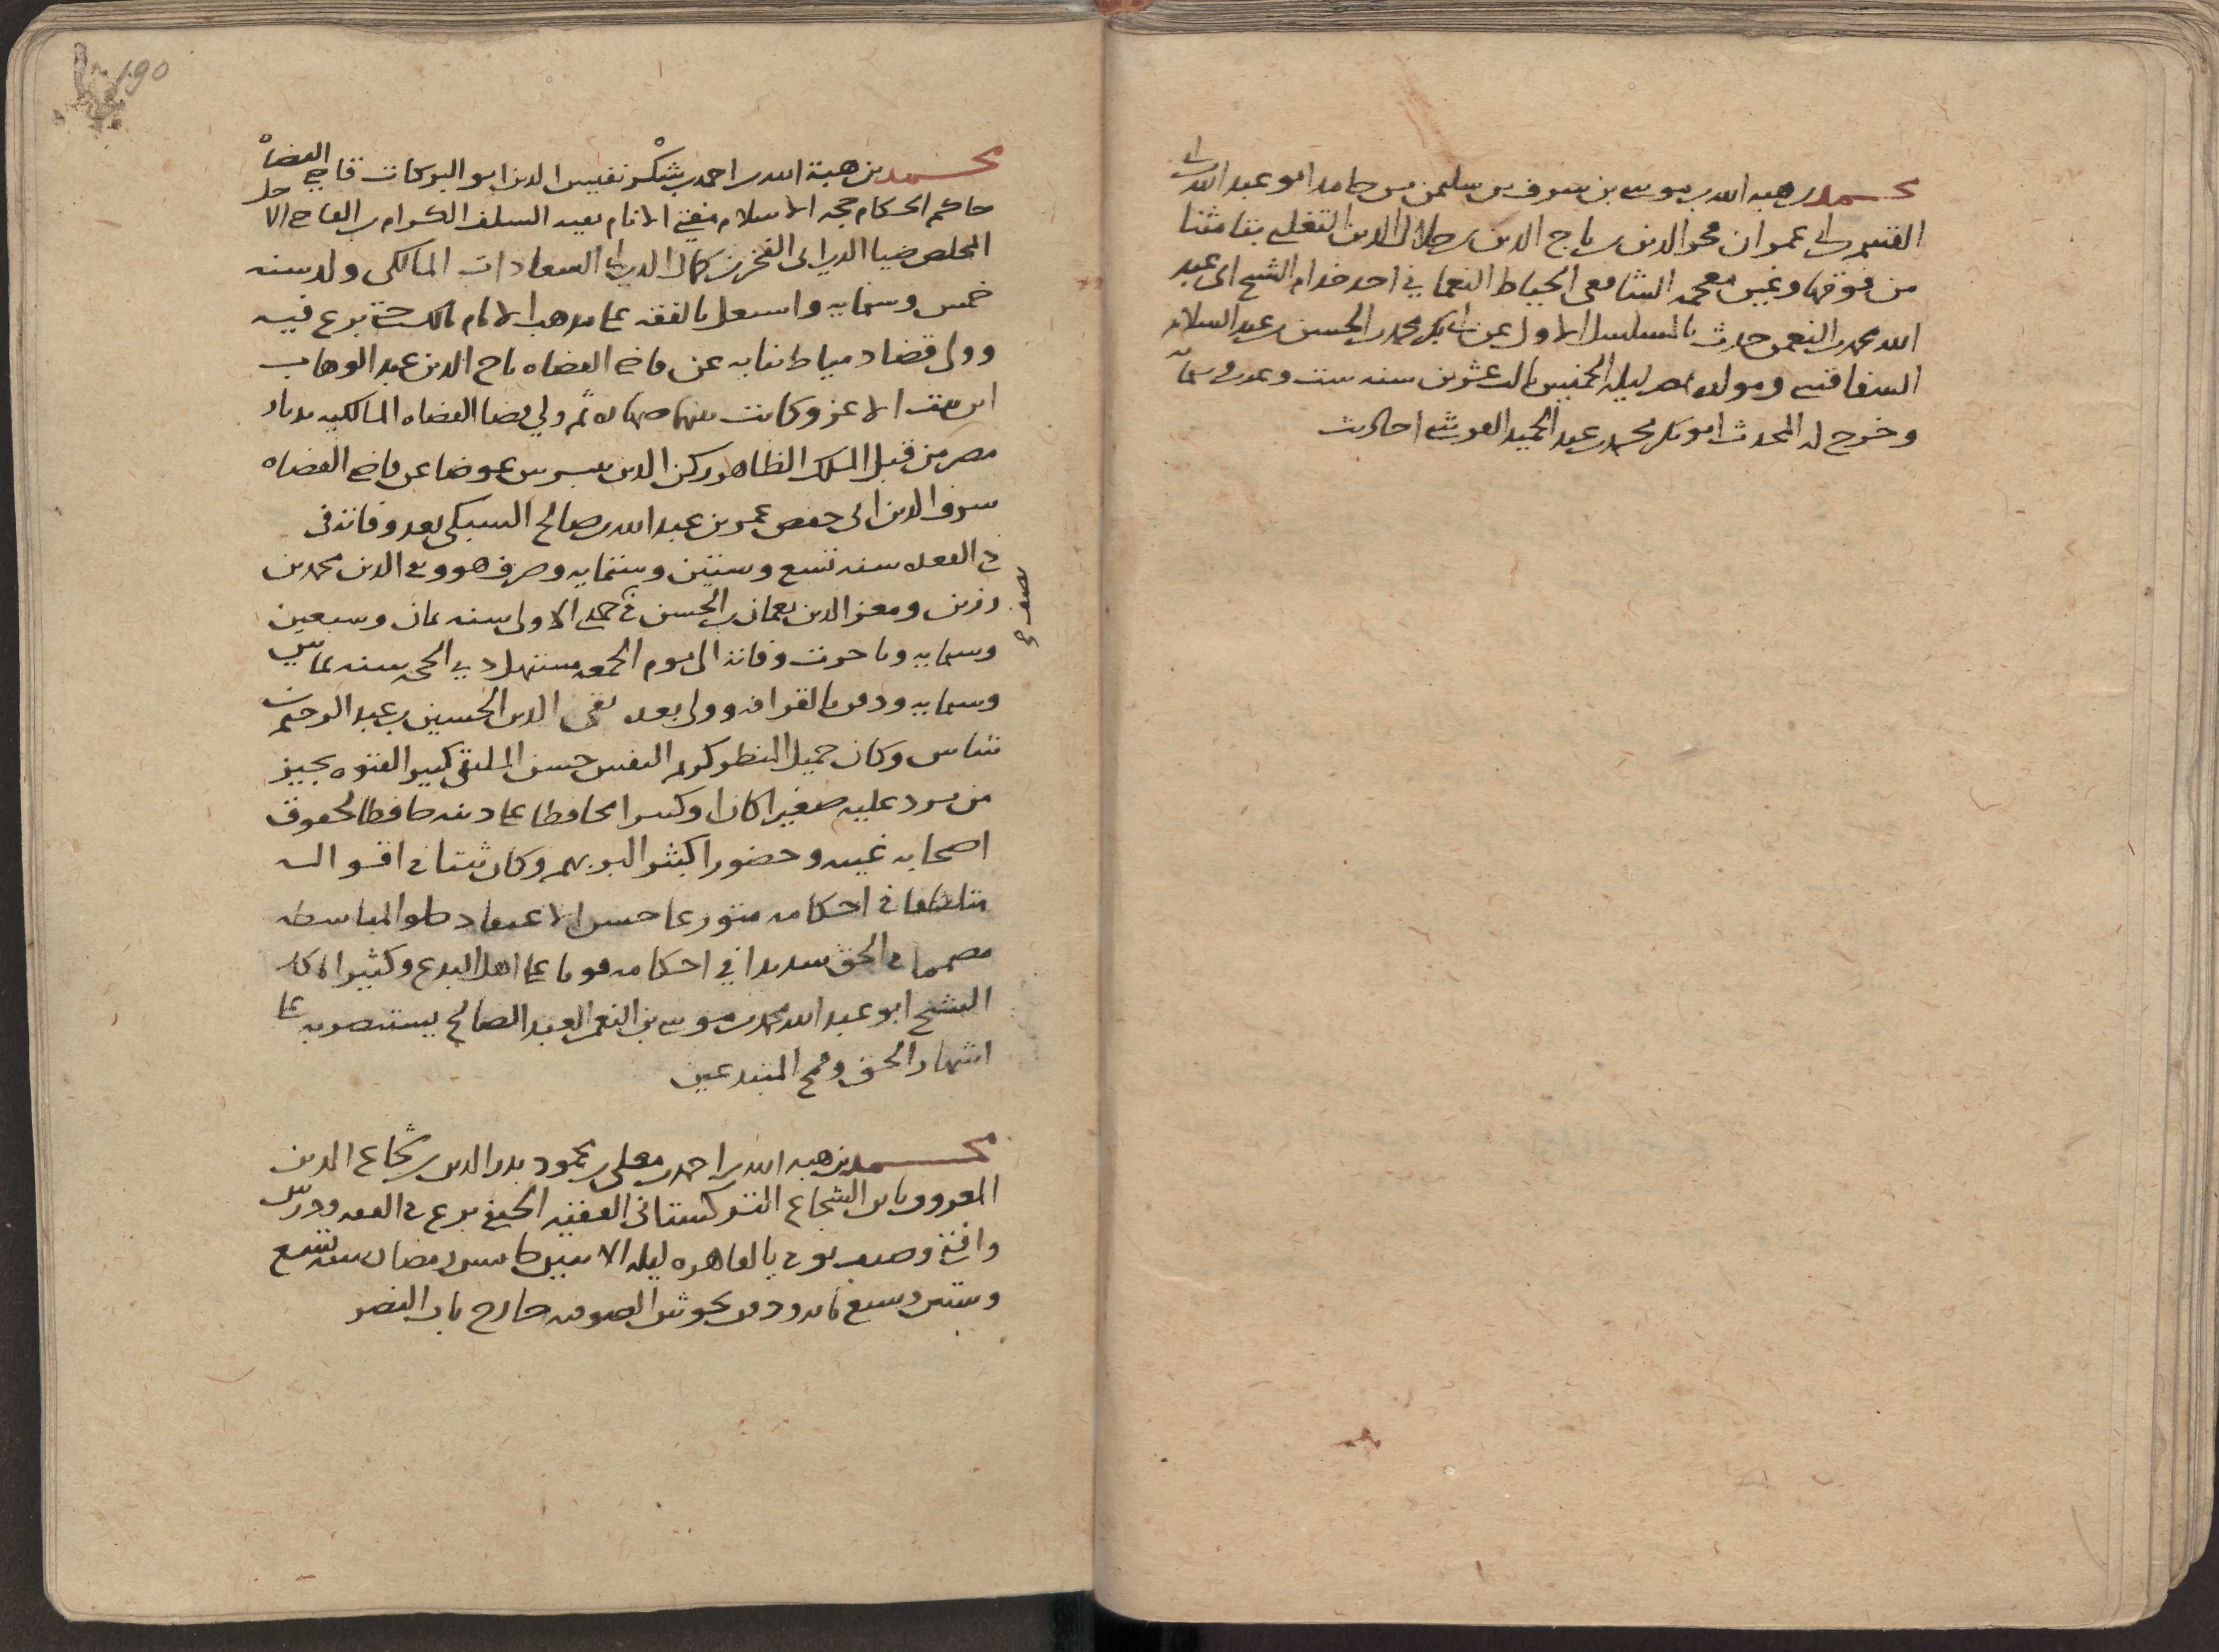 محمد بن هبه الله بن موسى بن شرف بن سليمن بن حامد ابو عبد الله بن ابى
القسم بن ابى عمران محى الدين بن تاج الدين بن جلال الدين التغلبى بتا مثناة
من فوقها وغين معجمه الشافعى الخياط النعمانى احد خدام الشيخ ابى عبد
الله محمد بن النعمن حدث بالمسلسل الاول عن ابى بكر محمد بن الحسن بن عبد السلام
السفاقسى ومولده بمصر ليلة الخميس ثالث عشرين سنه ست وعشرين وستمائة
وخرج له المحدث ابو بكر محمد بن عبد الحميد القرشى احاديث
190
محمد بن هبة الله بن احمد بن شكر نفيس الدين ابو البركات قاضى القضاه
حاكم الحكام حجه الاسلام مفتى الانام بقيه السلف الكرام بن القاضى الاجل
المخلص ضيا الدين ابى الفخر بن كمال الدين ابى السعادات المالكى ولد سنه
خمس وستمايه واشتغل بالفقه على مذهب الامام مالك حتى برع فيه
وولى قضا دمياط نيابه عن قاضى القضاه تاج الدين عبد الوهاب
ابن بنت الاعز وكانت بينهما صهاره ثم ولي قضا القضاه المالكيه بديار
مصر من قبل الملك الظاهر ركن الدين بيبرس عوضا عن قاضى القضاه
شرف الدين ابى حفص عمر بن عبد الله بن صالح السبكى بعد وفاته فى
ذى القعده سنه تسع وستين وستمايه وصرف هو وتقى الدين محمد بن
رزين ومعز الدين نعمان بن الحسن فى جمدى الاولى سنه ثمان وسبعين
وستمايه وتاخرت وفاته الى يوم الجمعه مستهل ذي الحجه سنه ثمانين
وستمايه ودفن بالقرافه وولى بعده تقى الدين الحسين بن عبد الرحيم بن
شاس وكان جميل المنظر كريم النفس حسن الملتقى كبير الفتوه يجيز
من يرد عليه صغيرا كان او كبيرا محافظا على دينه حافظا لحقوق
اصحابه غيبه وحضورا كثير البر بهم وكان ثبتا فى اقواله
فى احكامه متورعا حسن الاعتقاد حلو المباسطه
مصمما فى الحق سديدا في احكامه قويا على اهل البدع وكثيرا ما كان
الشيخ ابو عبد الله محمد بن موسى بن النعمن العبد الصالح يستنصر به على
اشهار الحق وقمع المبتدعين
محمد بن هبه الله بن احمد بن معلى بن محمود بدر الدين بن شجاع الدين
المعروف بابن الشجاع التركستانى الفقيه الحنفى برع فى الفقه ودرس
وافتى وصنف توفى بالقاهره ليله الاثنين خامس رمضان سنه تسع
وستين وسبع مائه ودفن بحوش الصوفيه خارج باب النصر